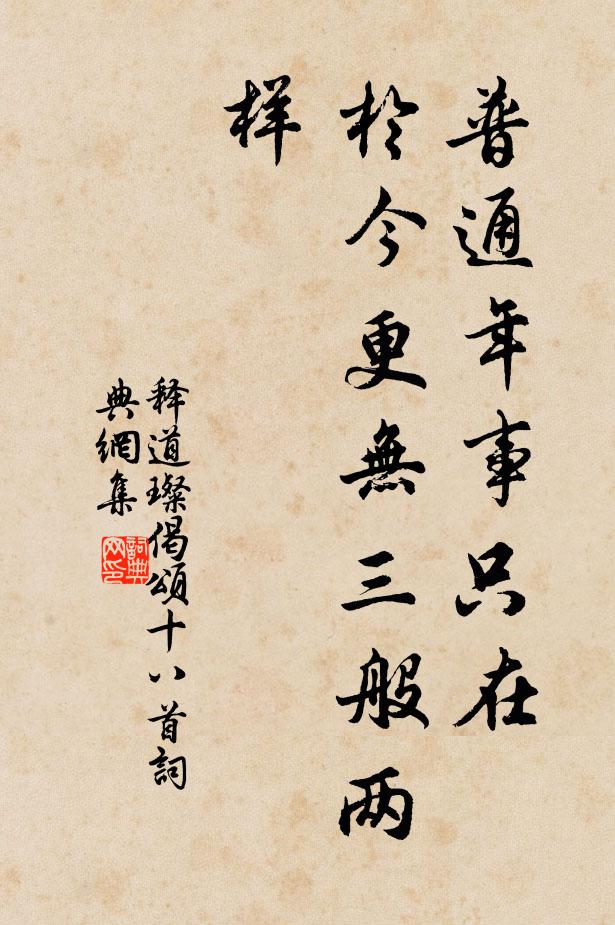 普通年事只在
於今更無三般两
样
释道璨偈頌十八首詞
典網集
詞典网印